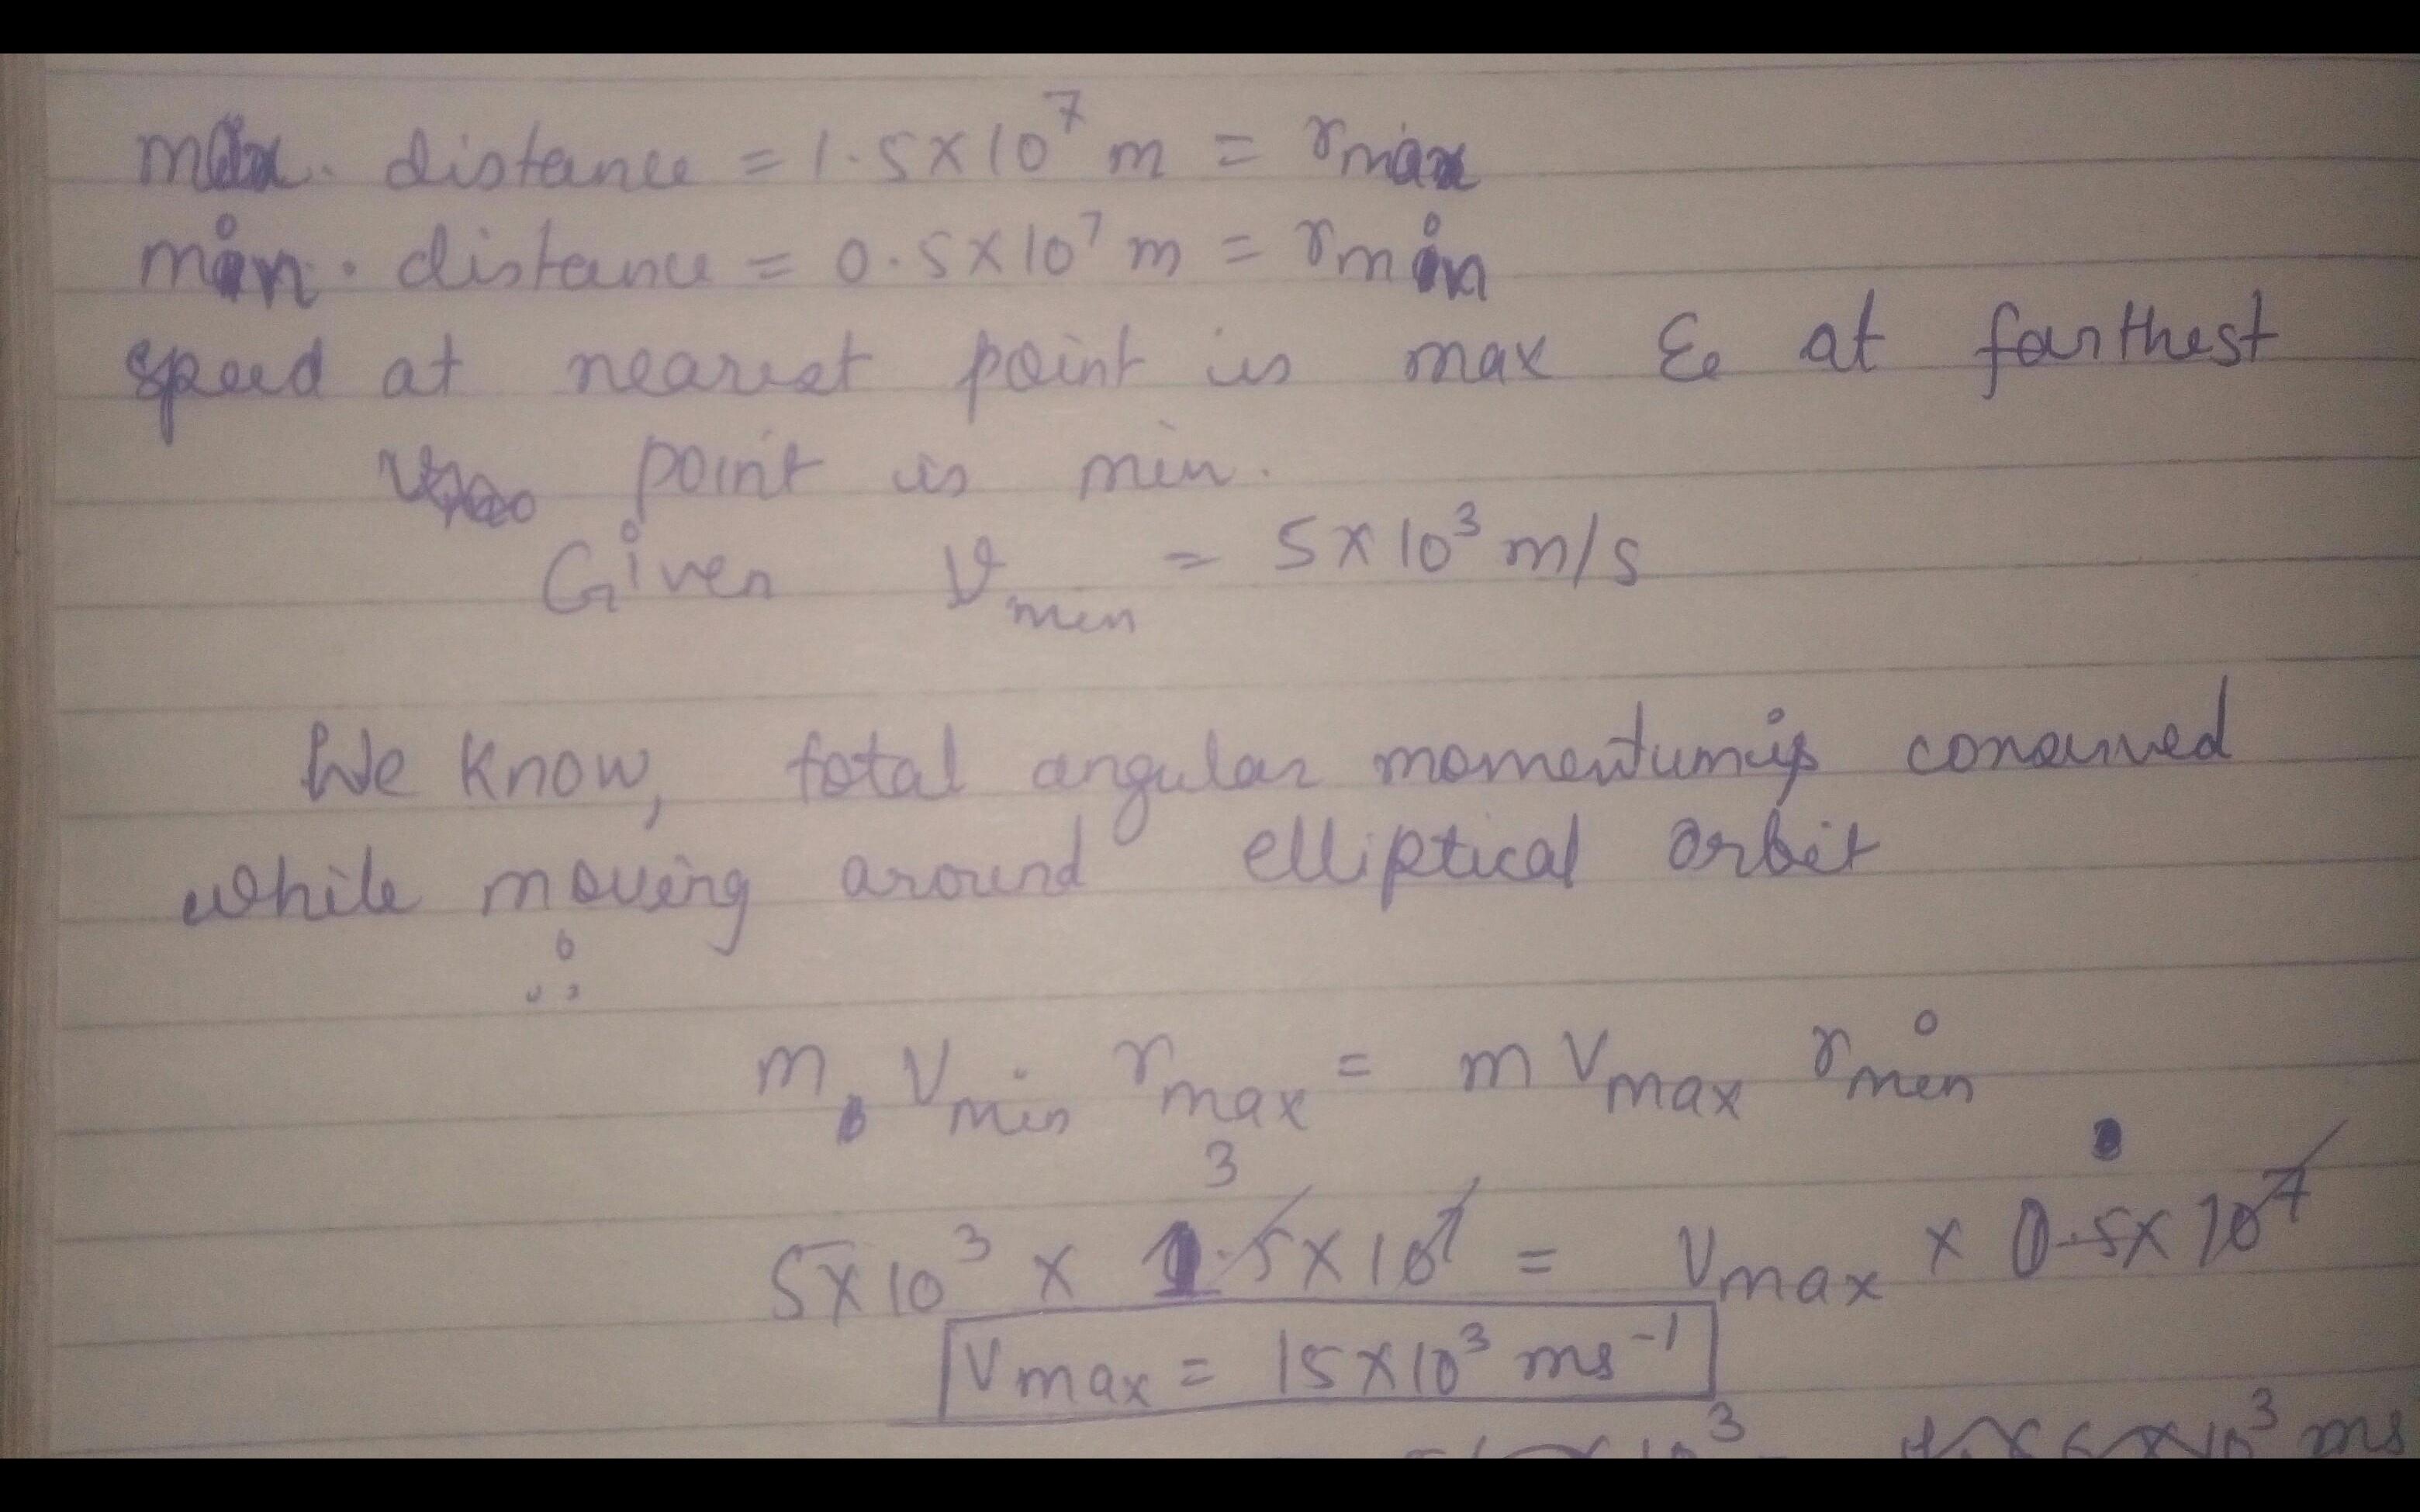 max. distance = 1.5×10⁷ m = rmax
min. distance = 0.5×10⁷ m = rmin
speed at nearest point is max & at farthest
point is min.
Given vmin = 5×10³ m/s
We know, total angular momentum is conserved
while moving around elliptical orbit
∴
m vmin rmax = m vmax rmin
3
5×10³ × 1.5×10⁷ = vmax × 0.5×10⁷
Vmax = 15×10³ ms⁻¹